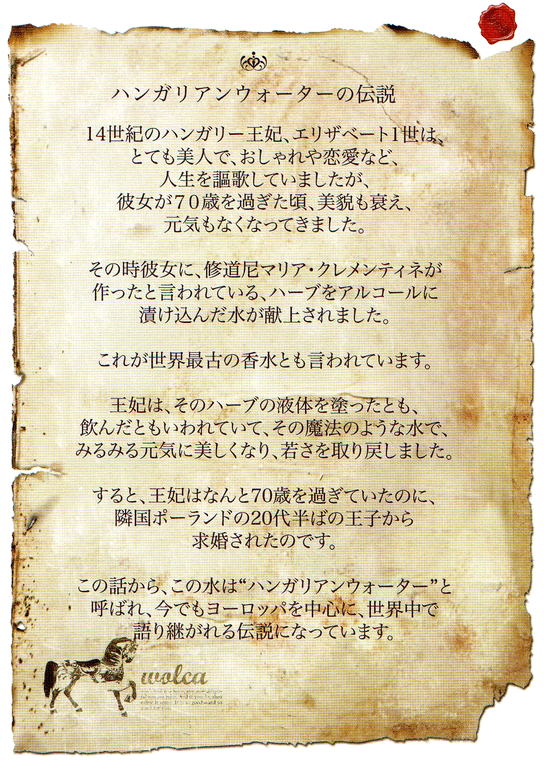 ハンガリアンウォーターの伝説
14世紀のハンガリー王妃、エリザベート1世は、
とても美人で、おしゃれや恋愛など、
人生を謳歌していましたが、
彼女が70歳を過ぎた頃、美貌も衰え、
元気もなくなってきました。
その時彼女に、修道尼マリア・クレメンティネが
作ったと言われている、ハーブをアルコールに
漬け込んだ水が献上されました。
これが世界最古の香水とも言われています。
王妃は、そのハーブの液体を塗ったとも、
飲んだともいわれていて、その魔法のような水で、
みるみる元気に美しくなり、若さを取り戻しました。
すると、王妃はなんと70歳を過ぎていたのに、
隣国ポーランドの20代半ばの王子から
求婚されたのです。
この話から、この水は“ハンガリアンウォーター”と
呼ばれ、今でもヨーロッパを中心に、世界中で
語り継がれる伝説になっています。
wolca